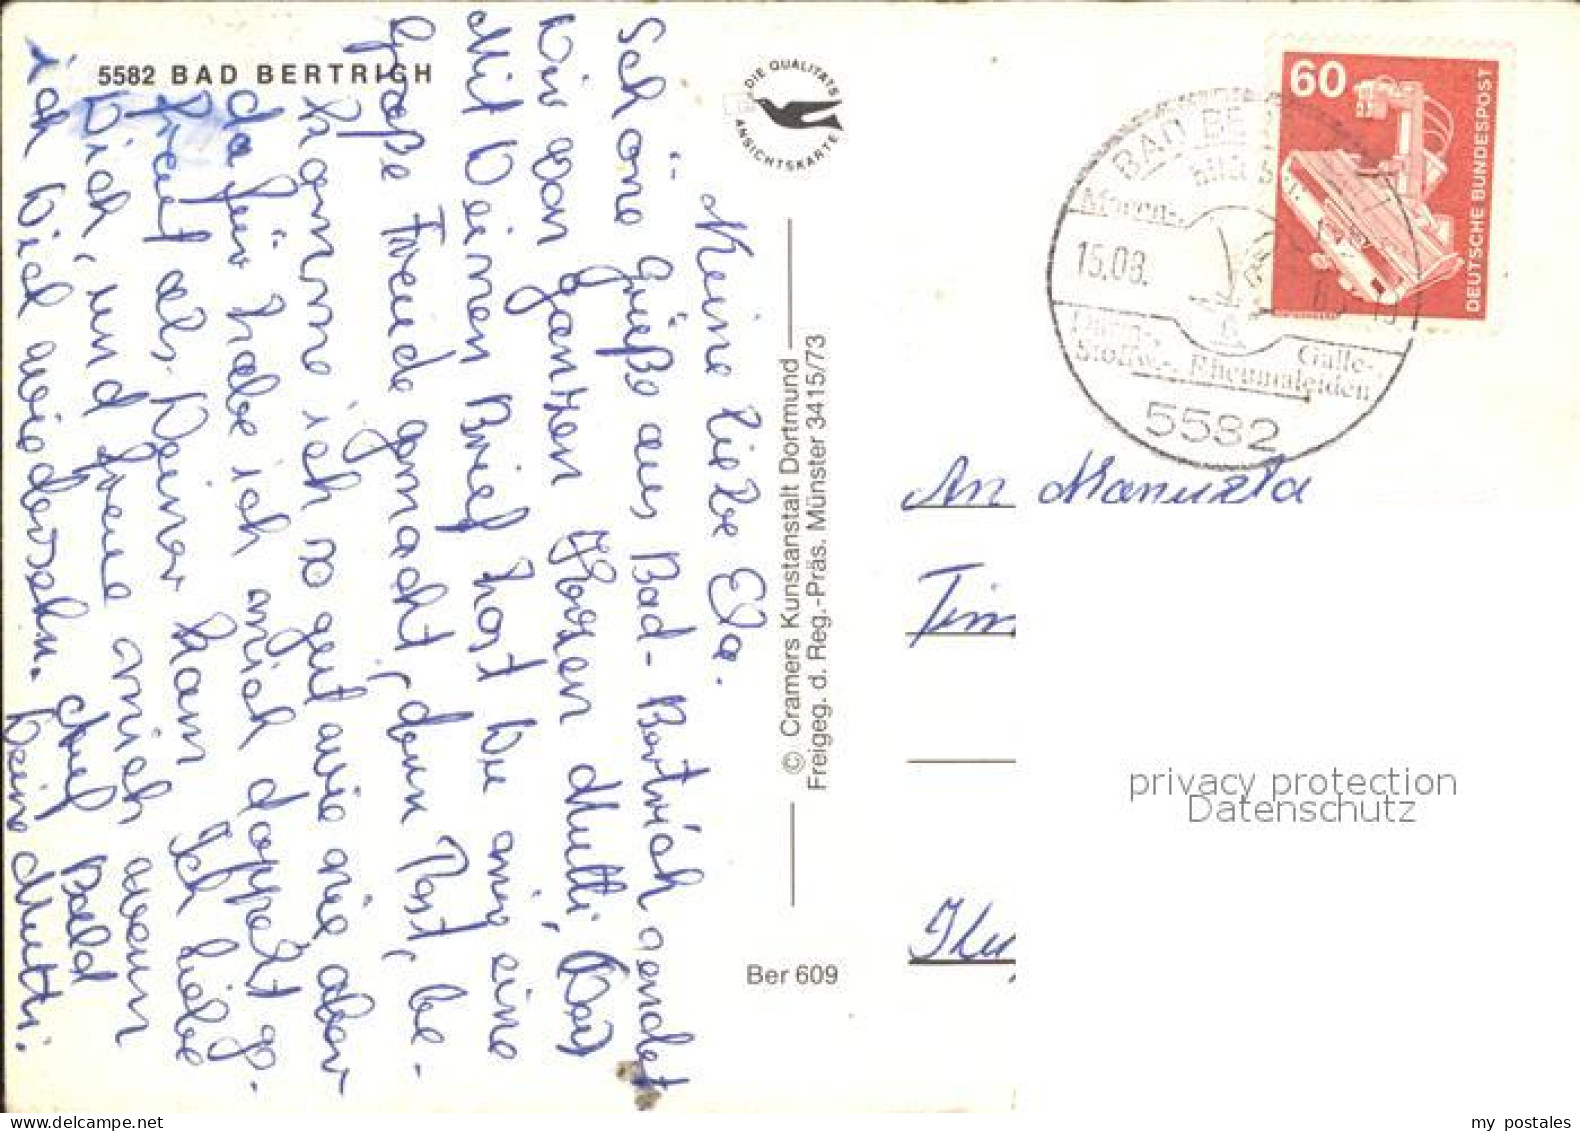 5582 BAD BERTRICH
Meine liebe Ela.
Schöne Grüße aus Bad-Bertrich sendet
Dir von ganzen Herzen Mutti,
Mit Deinen Brief hast Du mir eine
große Freude gemacht, denn Post, be-
komme ich so gut wie nie aber
dafür habe ich mich doppelt ge-
freut als Deiner kam Ich liebe
Dich, und freue mich wenn
ich Dich wiedersehn. Bald
Deine Mutti.
DIE QUALITÄTS
ANSICHTSKARTE
© Cramers Kunstanstalt Dortmund
Freigeg. d. Reg.-Präs. Münster 3415/73
Ber 609
60
DEUTSCHE BUNDESPOST
BAD BE
Magen-,
15.08.
Darm-,
Galle-,
Stoffw.-, Rheumaleiden
5582
An Manuela
privacy protection
Datenschutz
my postales